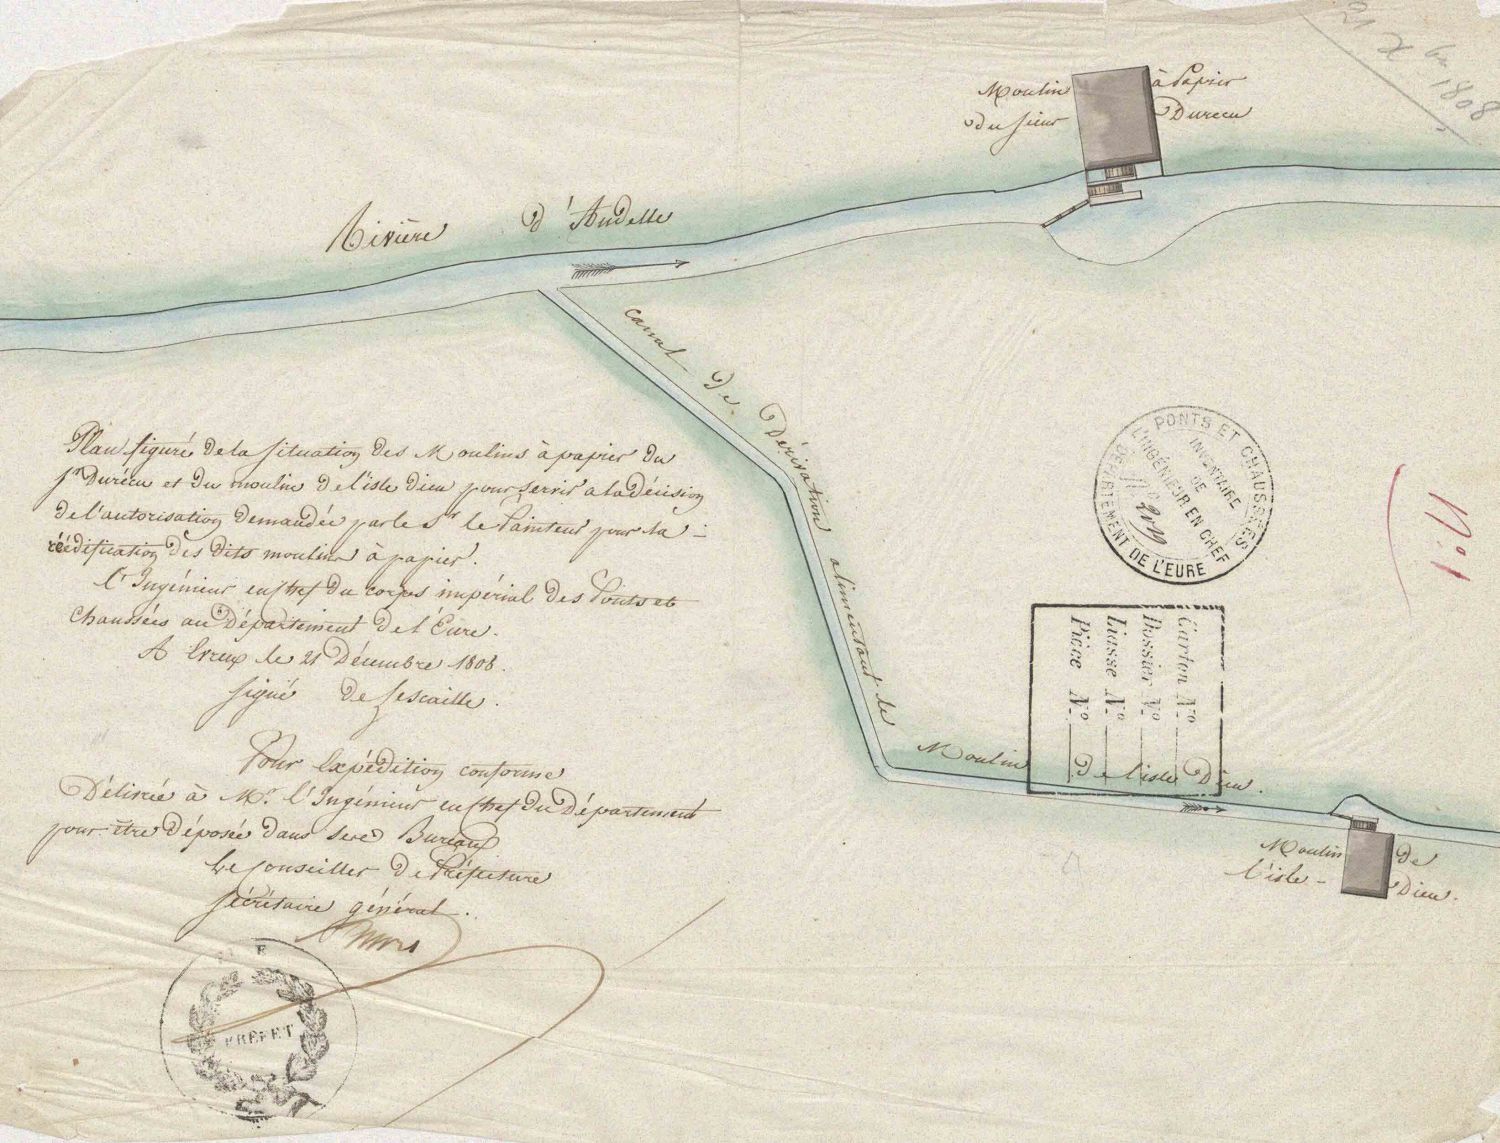 21 Xbre 1808
Moulin à Papier
du sieur Durécu
Rivière d'Andelle
Canal de Dérivation alimentant le Moulin de l'isle Dieu.
Plan figuré de la situation des Moulins à papier du
Sr Durécu et du moulin de l'isle dieu pour servir a la décision
de l'autorisation demandée par le Sr le Painteur pour la
réédification des dits moulins à papier.
l'Ingénieur en chef du corps impérial des Ponts et
Chaussées au Département de l'Eure.
A Evreux le 21 Décembre 1808.
signé de Lescaille.
Pour Expédition conforme
Délivrée à Mr. l'Ingénieur en chef du Département
pour être déposée dans ses Bureaux
Le Conseiller de Préfecture
sécrétaire général.
PRÉFET
PONTS ET CHAUSSÉES
DÉPARTEMENT DE L'EURE
L'INGÉNIEUR EN CHEF
INVENTAIRE
DE
No. 1
Carton No.
Dossier No.
Liasse No.
Pièce No.
Moulin de
l'isle - Dieu.